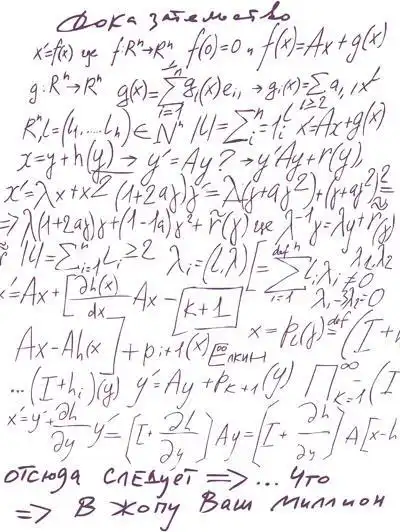 Доказательство
x'=f(x) где f:Rⁿ→Rⁿ f(0)=0 и f(x)=Ax+g(x)
g:Rⁿ→Rⁿ g(x)=∑gᵢ(x)eᵢ, → gᵢ(x)=∑a
Rⁿ, L=(l₁,....lₙ)∈Nⁿ |L|=∑ᵢ₌₁ⁿlᵢ x'=Ax+g(x)
x=y+h(y) → y'=Ay? → y'Ay+r(y),
x'=λx+x² (1+2ay)y'=λ(y+ay²)+(y+ay²)²=
=>λ(1+2ay)y+(1-λa)y²+r̃(y) где λ⁻¹y=λy+r̃(y)
|L|=∑ᵢ₌₁ⁿLᵢ≥2 λᵢ=(L,λ)[=∑ᵢ₌₁ⁿlᵢλᵢ≠0 λ₁λ₂
x'=Ax+[∂h(x)/dx Ax- k+1 λ₁-3λ₂=0
Ax-Ah(x]+pᵢ+1(x) x=Pₖ(y)=def(I+h
...(I+hᵢ)(y) y'=Ay+Pₖ₊₁(y) ∏ₖ₌₁^∞(I
x'=y'+∂h/∂y y'=[I+∂h/∂y]Ay=(I+∂h/∂y)A[x-h
отсюда следует =>... что
=> В жопу Ваш миллион